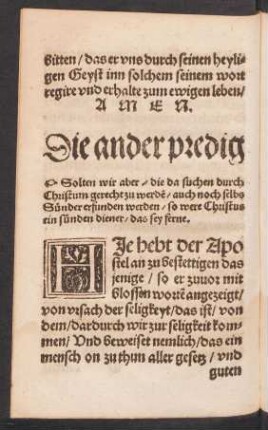 bitten / das er vns durch seinen heyli-
gen Geyst inn solchem seinem wort
regire vnd erhalte zum ewigen leben /
A M E N.
Die ander predig
Solten wir aber / die da suchen durch
Christum gerecht zu werdē / auch noch selbs
Sünder erfunden werden / so were Christus
ein sünden diener / das sey ferne.
HIe hebt der Apo
stel an zu bestettigen das
jenige / so er zuuor mit
blossen wortē angezeigt /
von vrsach der seligkeyt / das ist / von
dem / dardurch wir zur seligkeit kom-
men / Vnd beweiset nemlich / das ein
mensch on zu thun aller gesetz / vnd
guten